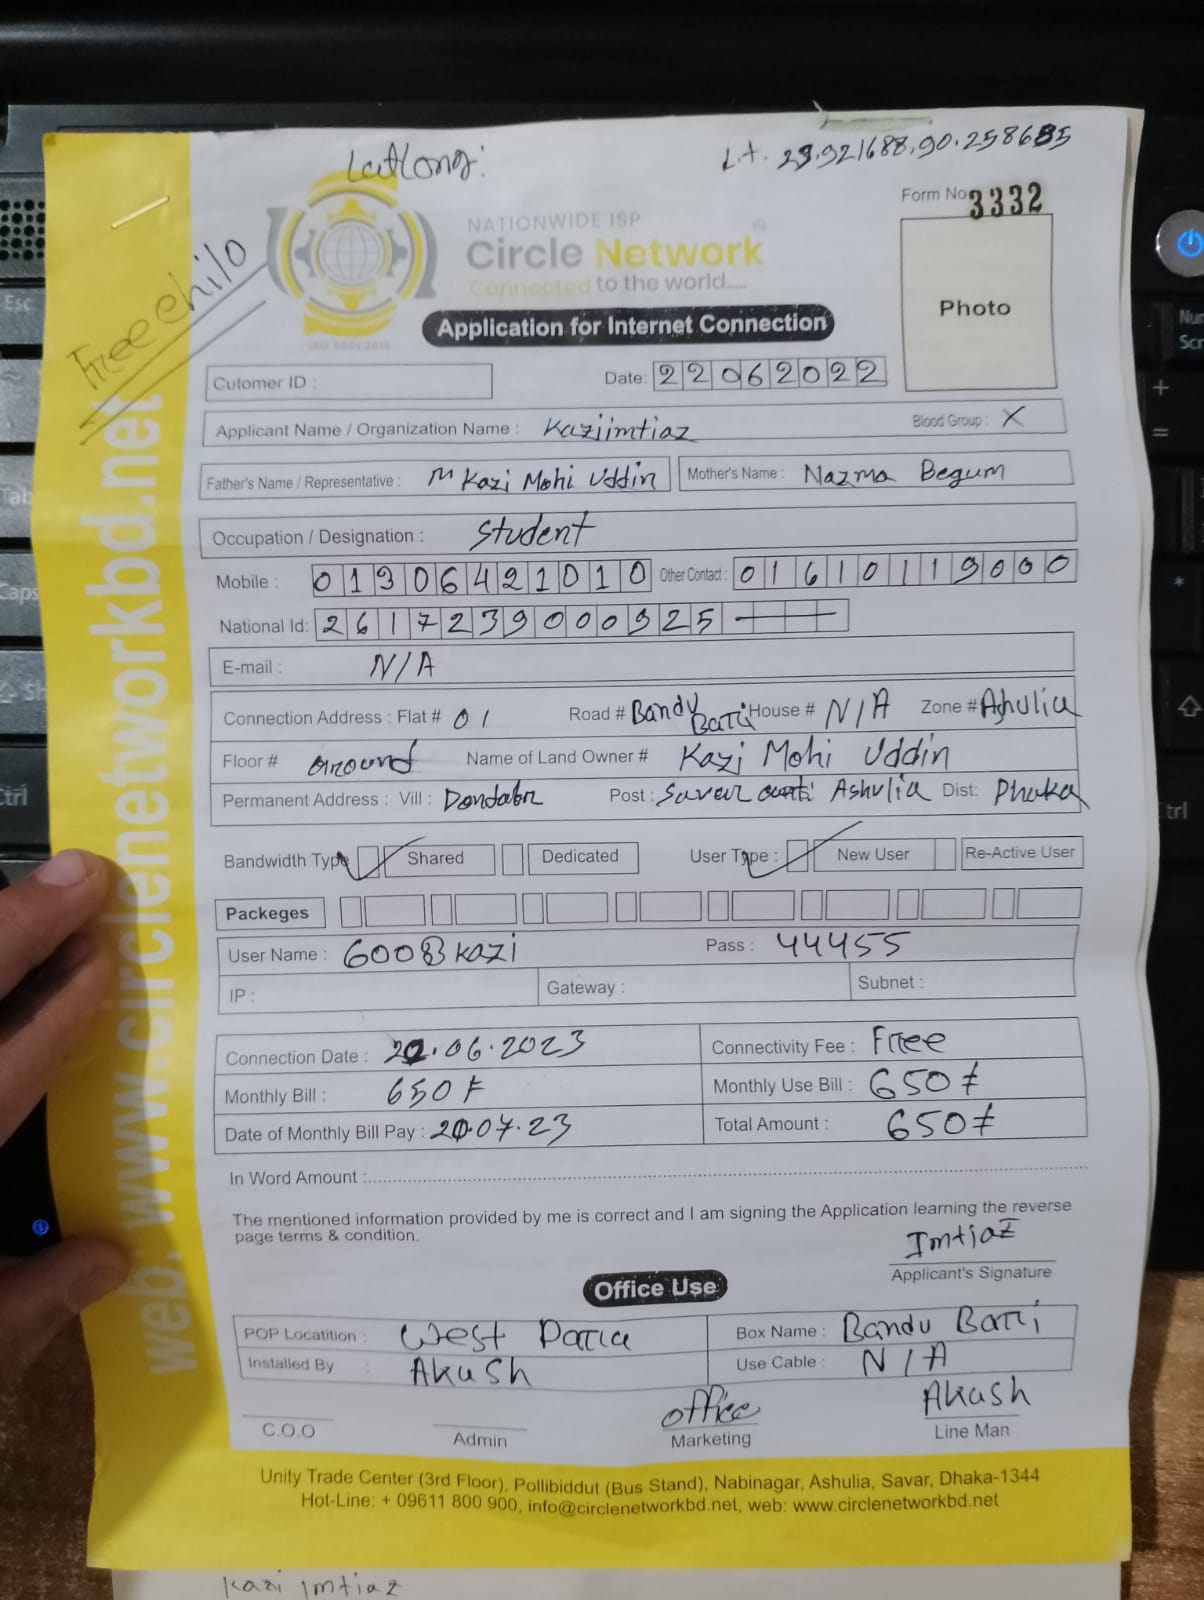 LatLong:
Lt. 23.921688,90.258685
Form No 3332
NATIONWIDE ISP
Circle Network
Connected to the world.....
ISO 9001:2015
Free chilo
Photo
Application for Internet Connection
Cutomer ID :
Date: 22062022
Applicant Name / Organization Name : Kaziimtiaz
Blood Group : X
Father's Name / Representative : M Kazi Mohi Uddin
Mother's Name : Nazma Begum
Occupation / Designation : Student
Mobile : 01306421010 Other Contact : 01610119000
National Id: 2617239000925
E-mail : N/A
Connection Address : Flat # 01 Road # Bandu Batti House # N/A Zone # Ashulia
Floor # Ground Name of Land Owner # Kazi Mohi Uddin
Permanent Address : Vill : Dendabor Post : Savar Ashulia Dist: Dhaka
Bandwidth Type Shared Dedicated User Type : New User Re-Active User
Packeges
User Name : 6008kazi Pass : 44455
IP : Gateway : Subnet :
Connection Date : 20.06.2023 Connectivity Fee : Free
Monthly Bill : 650 Monthly Use Bill : 650
Date of Monthly Bill Pay : 20.07.23 Total Amount : 650
In Word Amount :
The mentioned information provided by me is correct and I am signing the Application learning the reverse
page terms & condition.
Imtiaz
Applicant's Signature
Office Use
POP Locatition : West Para Box Name : Bandu Batti
Installed By : Akash Use Cable : N/A
office Akash
C.O.O Admin Marketing Line Man
web: www.circlenetworkbd.net
Unity Trade Center (3rd Floor), Pollibiddut (Bus Stand), Nabinagar, Ashulia, Savar, Dhaka-1344
Hot-Line: + 09611 800 900, info@circlenetworkbd.net, web: www.circlenetworkbd.net
Kazi Imtiaz
Esc
Tab
Caps
Ctrl
Num
Scr